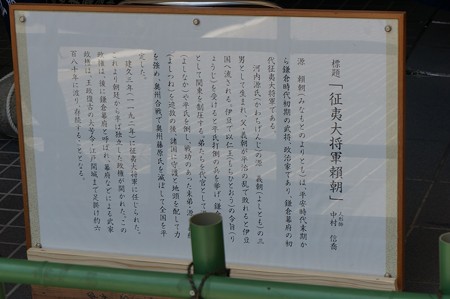 標題「征夷大将軍頼朝」
人形師 中村 信喬
源 頼朝(みなもとのよりとも)は、平安時代末期か
ら鎌倉時代初期の武将、政治家であり、鎌倉幕府の初
代征夷大将軍である。
河内源氏(かわちげんじ)の源 義朝(よしとも)の三
男として生まれ、父・義朝が平治の乱で敗れると伊豆
国へ流される。伊豆で以仁王(もちひとおう)の令旨(り
ょうじ)を受けると平氏打倒の兵を挙げ、鎌倉
として関東を制圧する。弟たちを代官として
(よしなか)や平氏を倒し、戦功のあった末弟・源
(よしつね)を追放の後、諸国に守護と地頭を配して力
を強め、奥州合戦で奥州藤原氏を滅ぼして全国を平
定した。
建久三年(一一九二年)に征夷大将軍に任じられた。
これより朝廷から半ば独立した政権が開かれた。この
政権は、後に鎌倉幕府と呼ばれ、幕府などによる武家
政権は、王政復古の大号令・江戸開城まで足掛け約六
百八十年に渡り、存続することとなる。